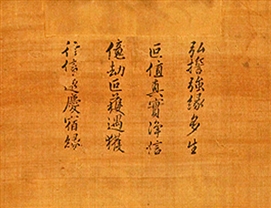 弘誓強縁多生
叵値真實淨信
億劫叵獲遇獲
行信遠慶宿縁